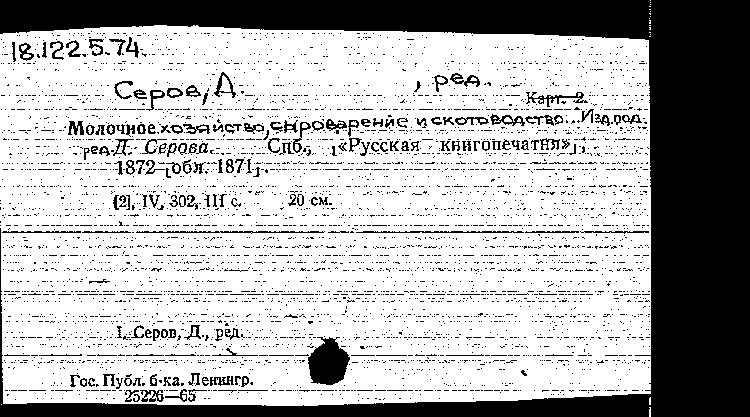 18.122.5.74.
Серов, Д. , ред.
Карт. 2.
Молочное хозяйство, сыроварение и скотоводство... Изд. под.
ред. Д. Серова. Спб., [«Русская книгопечатня»],
1872 [обл. 1871].
[2], IV, 302, III с. 20 см.
I. Серов, Д., ред.
Гос. Публ. б-ка. Ленингр.
25226—65